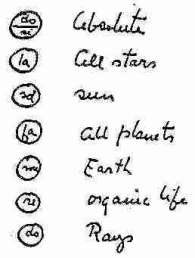 do si Absolute
la All stars
sol sun
fa all planets
mi Earth
re organic life
do Rays